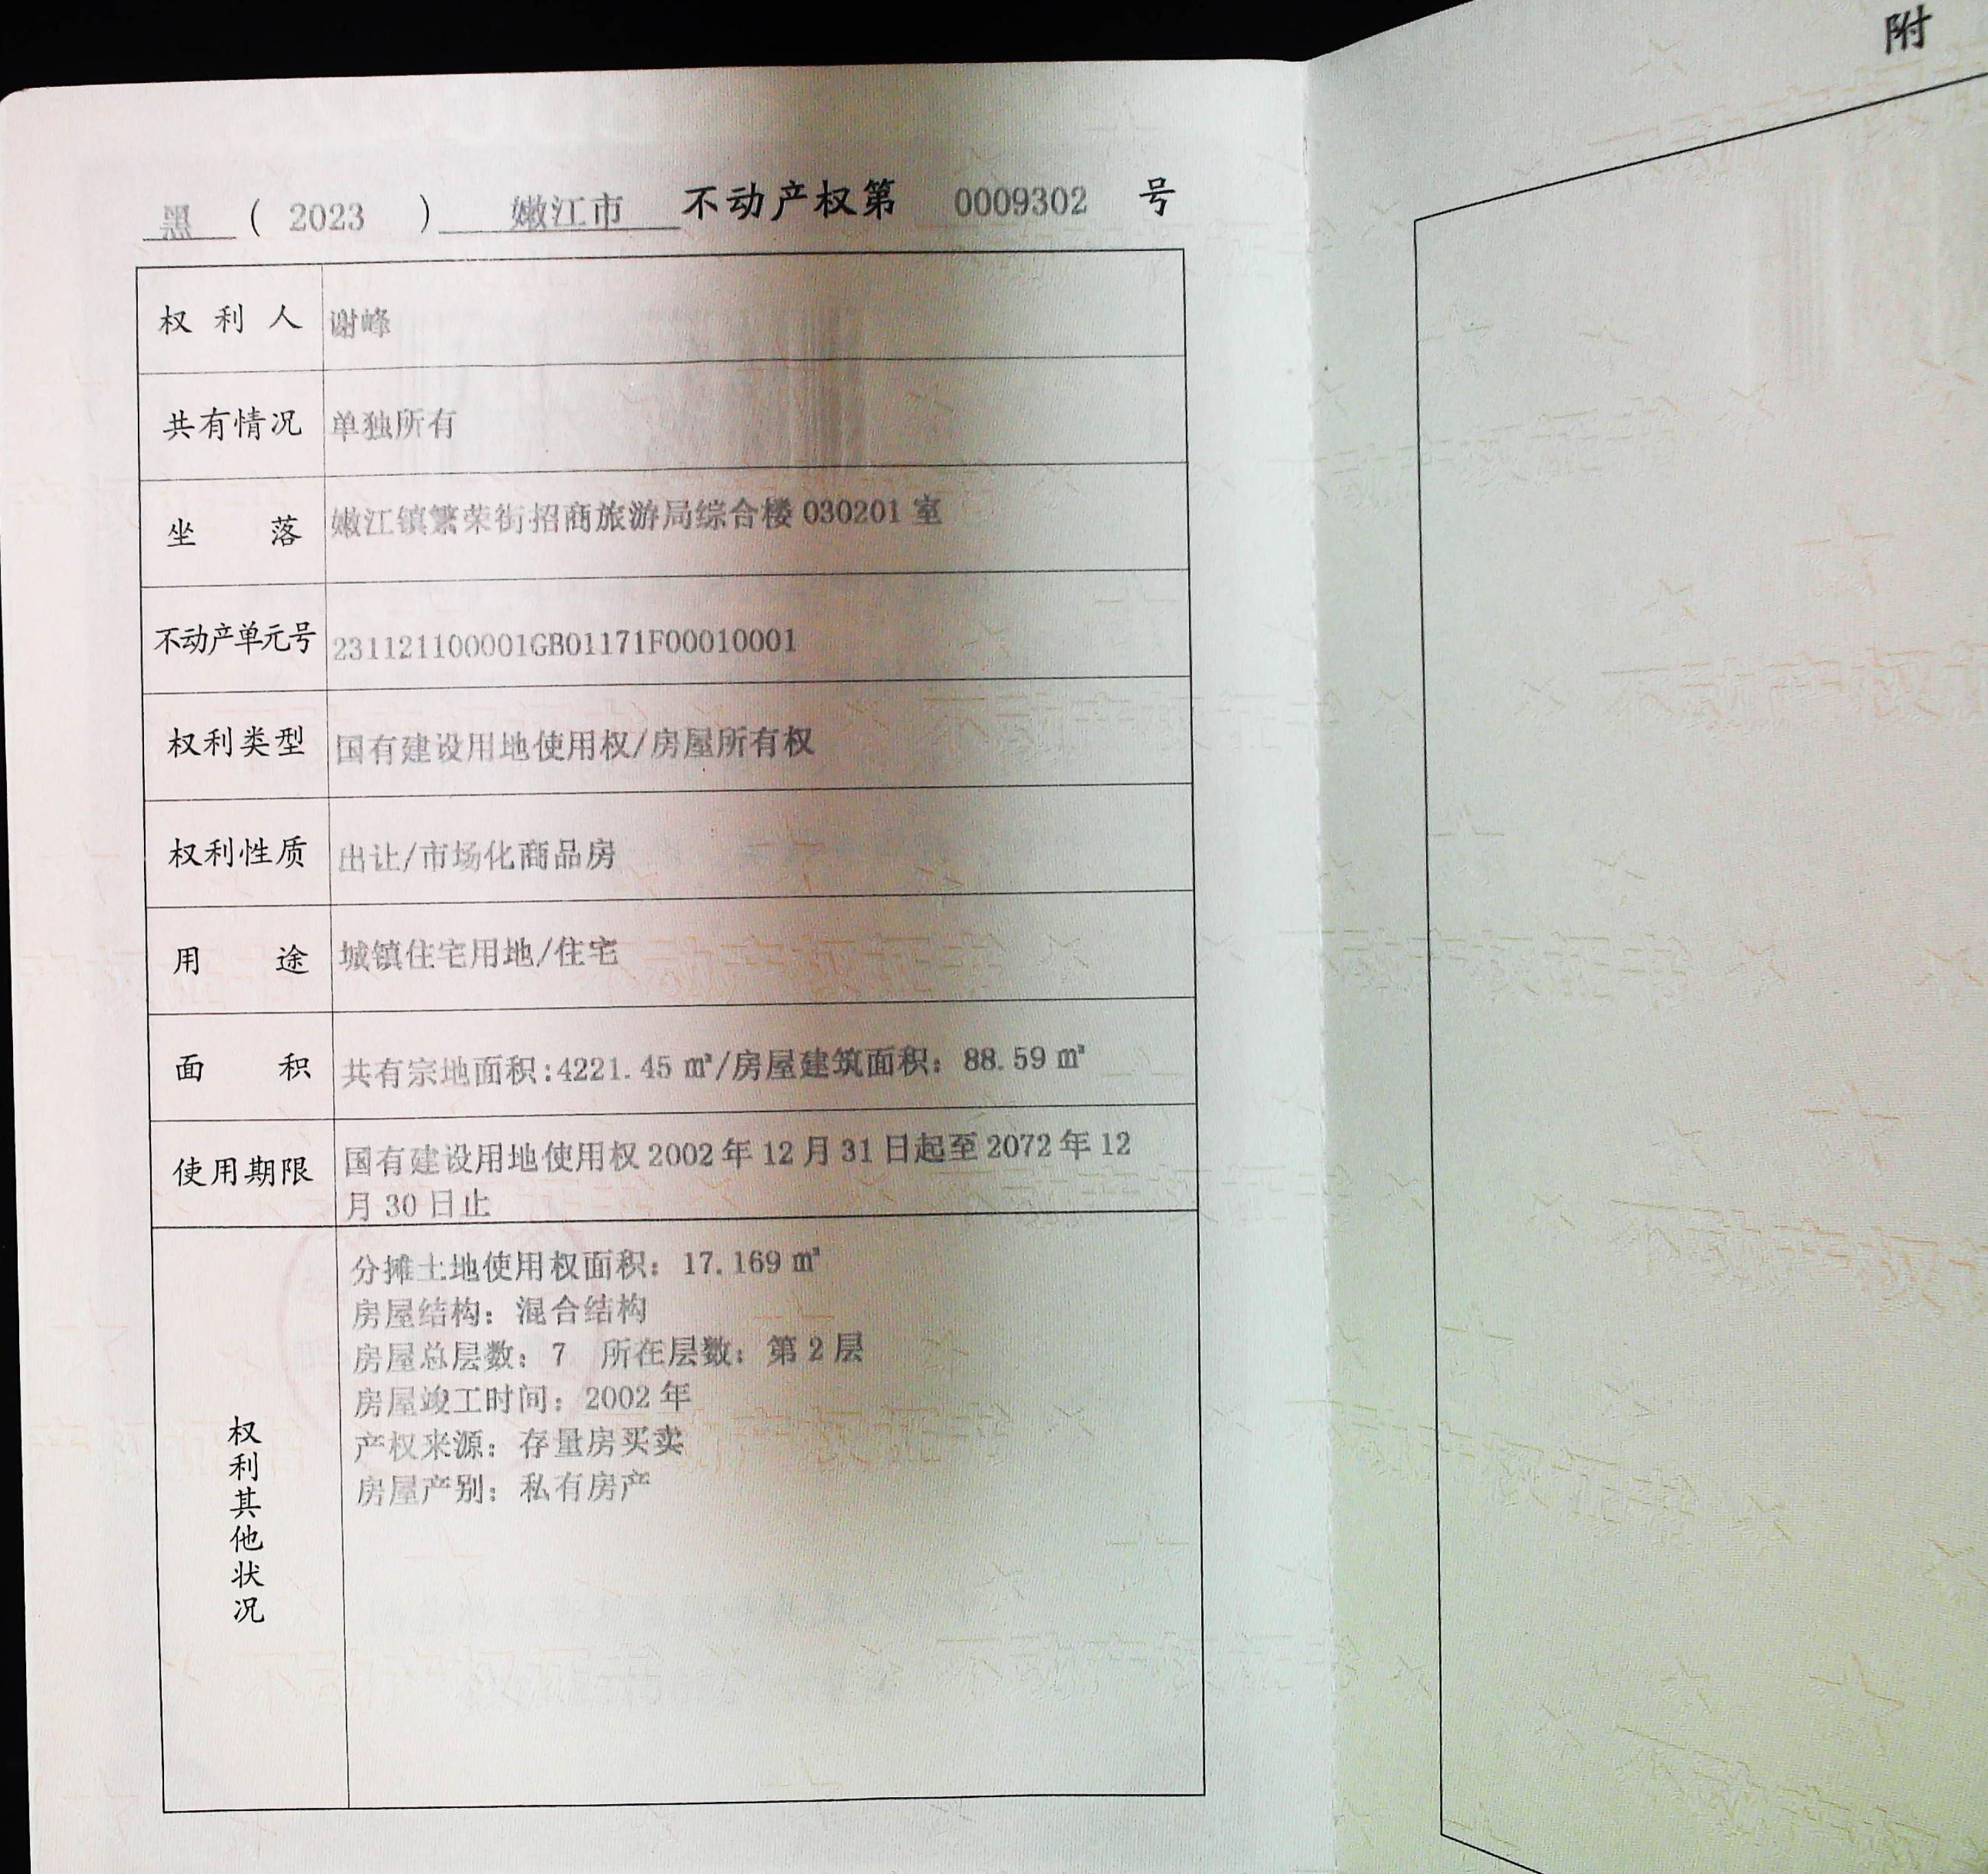 黑 ( 2023 ) 嫩江市 不动产权第 0009302 号
权利人 谢峰
共有情况 单独所有
坐落 嫩江镇繁荣街招商旅游局综合楼 030201 室
不动产单元号 231121100001GB01171F00010001
权利类型 国有建设用地使用权/房屋所有权
权利性质 出让/市场化商品房
用途 城镇住宅用地/住宅
面积 共有宗地面积:4221.45 ㎡/房屋建筑面积: 88.59 ㎡
使用期限 国有建设用地使用权 2002 年 12 月 31 日起至 2072 年 12
月 30 日止
权利其他状况
分摊土地使用权面积: 17.169 ㎡
房屋结构: 混合结构
房屋总层数: 7 所在层数: 第 2 层
房屋竣工时间: 2002 年
产权来源: 存量房买卖
房屋产别: 私有房产
附